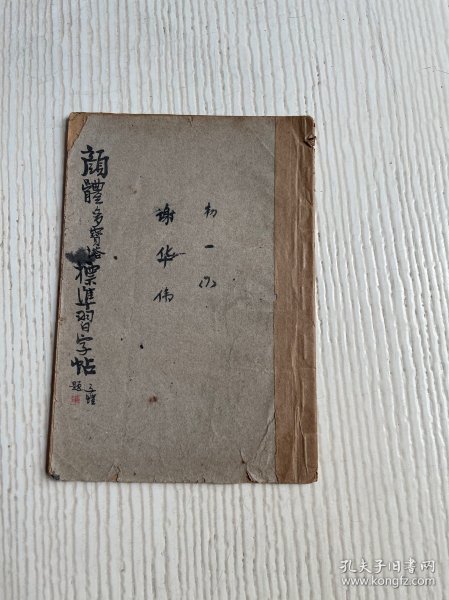 初一(7)
谢华伟
颜體多寶塔標準習字帖
子愷
題
孔夫子旧书网
www.kongfz.com